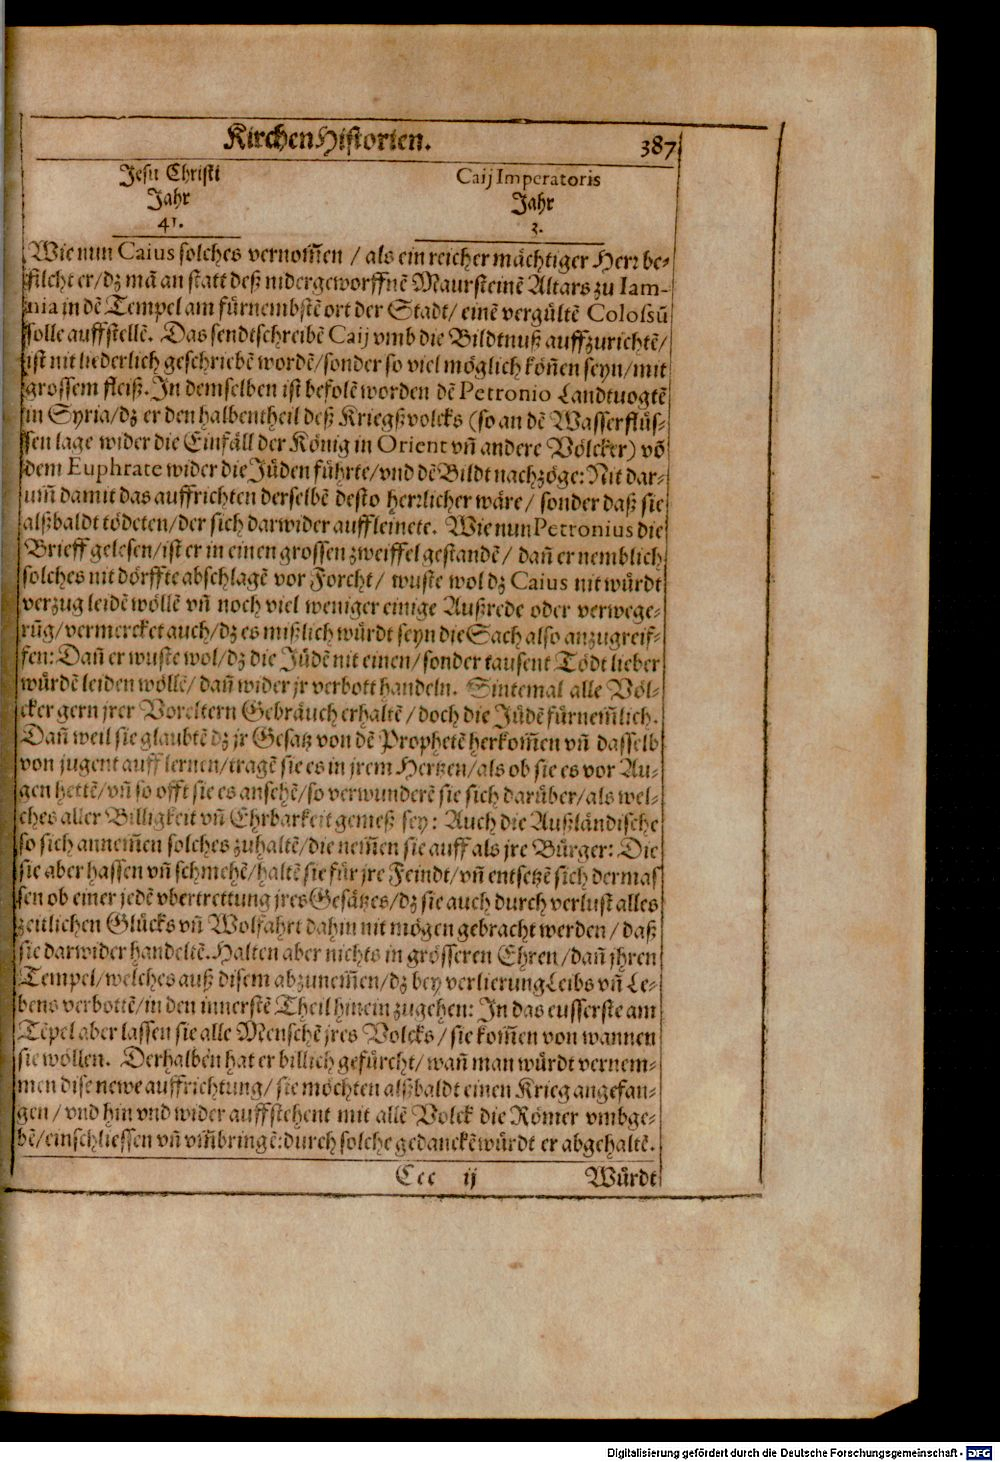 KirchenHistorien. 387
Jesu Christi Caij Imperatoris
Jahr Jahr
41. 3.
Wie nun Caius solches vernom̃en / als ein reicher mächtiger Herr be-
filcht er/dz mã an statt deß nidergeworffnẽ Maursteinẽ Altars zu Iam-
nia in dẽ Tempel am fürnembstẽ ort der Stadt/ einẽ vergültẽ Colosũ
solle auffstellẽ. Das sendtschreibẽ Caij vmb die Bildtnuß auffzurichtẽ/
ist nit liederlich geschriebẽ wordẽ/sonder so viel möglich kön̄en seyn/mit
grossem fleiß. In demselben ist befolẽ worden dẽ Petronio Landtvogtẽ
in Syria/dz er den halbentheil deß Kriegßvolcks (so an dẽ Wasserflüs-
sen lage wider die Einfäll der König in Orient vn̄ andere Völcker) võ
dem Euphrate wider die Jüden führte/vnd dẽ Bildt nachzöge: Nit dar-
um̃ damit das auffrichten derselbẽ desto herrlicher wäre/ sonder daß sie
alßbaldt tödeten/der sich darwider auffleinete. Wie nun Petronius die
Brieff gelesen/ist er in einen grossen zweiffel gestandẽ/ dan̄ er nemblich
solches nit dörffte abschlagẽ vor Forcht/ wuste wol dz Caius nit würdt
verzug leidẽ wöllẽ vn̄ noch viel weniger einige Außrede oder verwege-
rũg/vermercket auch/dz es mißlich würdt seyn die Sach also anzugreif-
fen: Dan̄ er wuste wol/dz die Jüdẽ nit einen/sonder tausent Tödt lieber
würdẽ leiden wöllẽ/ dan̄ wider jr verbott handeln. Sintemal alle Völ-
cker gern jrer Voreltern Gebräuch erhaltẽ/doch die Jüdẽ fürnem̃lich.
Dan̄ weil sie glaubtẽ dz jr Gesatz von dẽ Prophetẽ herkom̃en vn̄ dasselb
von jugent auff lernen/tragẽ sie es in jrem Hertzen/als ob sie es vor Au-
gen hettẽ/vn̄ so offt sie es ansehẽ/so verwunderẽ sie sich darüber/als wel-
ches aller Billigkeit vn̄ Ehrbarkeit gemeß sey: Auch die Außländische
so sich annem̃en solches zuhaltẽ/die nem̃en sie auff als jre Bürger: Die
sie aber hassen vn̄ schmehẽ/haltẽ sie für jre Feindt/vn̄ entsetzẽ sich dermas
sen ob einer jedẽ vbertrettung jres Gesätzes/dz sie auch durch verlust alles
zeitlichen Glücks vn̄ Wolfahrt dahin nit mögen gebracht werden/ daß
sie darwider handeltẽ. Halten aber nichts in grösseren Ehren/dan̄ jhren
Tempel/welches auß disem abzunem̃en/dz bey verlierung Leibs vn̄ Le-
bens verbottẽ/in den innerstẽ Theil hinein zugehen: In das eusserste am
Tẽpel aber lassen sie alle Menschẽ jres Volcks/ sie kom̃en von wannen
sie wöllen. Derhalben hat er billich gefürcht/wan̄ man würdt vernem-
men dise newe auffrichtung/ sie möchten alßbaldt einen Krieg angefan-
gen/vnd hin vnd wider auffstehent mit allẽ Volck die Römer vmbge-
bẽ/einschliessen vn̄ vm̃bringẽ: durch solche gedanckẽ würdt er abgehaltẽ.
Ccc ij Würdt
Digitalisierung gefördert durch die Deutsche Forschungsgemeinschaft - DFG